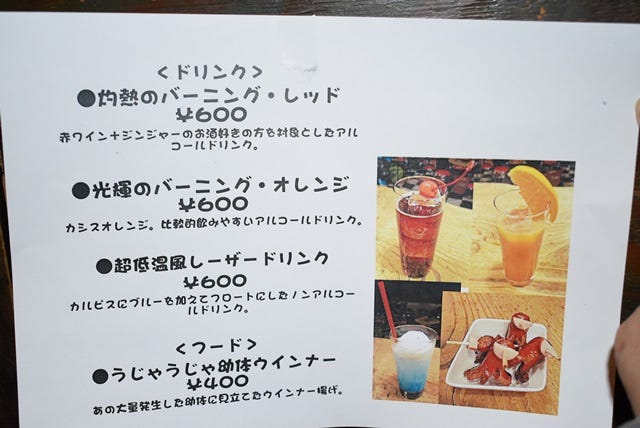 <ドリンク>
●灼熱のバーニング・レッド
¥600
赤ワイン+ジンジャーのお酒好きの方を対象としたアル
コールドリンク。
●光輝のバーニング・オレンジ
¥600
カシスオレンジ。比較的飲みやすいアルコールドリンク。
●超低温風レーザードリンク
¥600
カルピスにブルーを加えてフロートにしたノンアルコー
ルドリンク。
<フード>
●うじゃうじゃ幼体ウインナー
¥400
あの大量発生した幼体に見立てたウインナー揚げ。